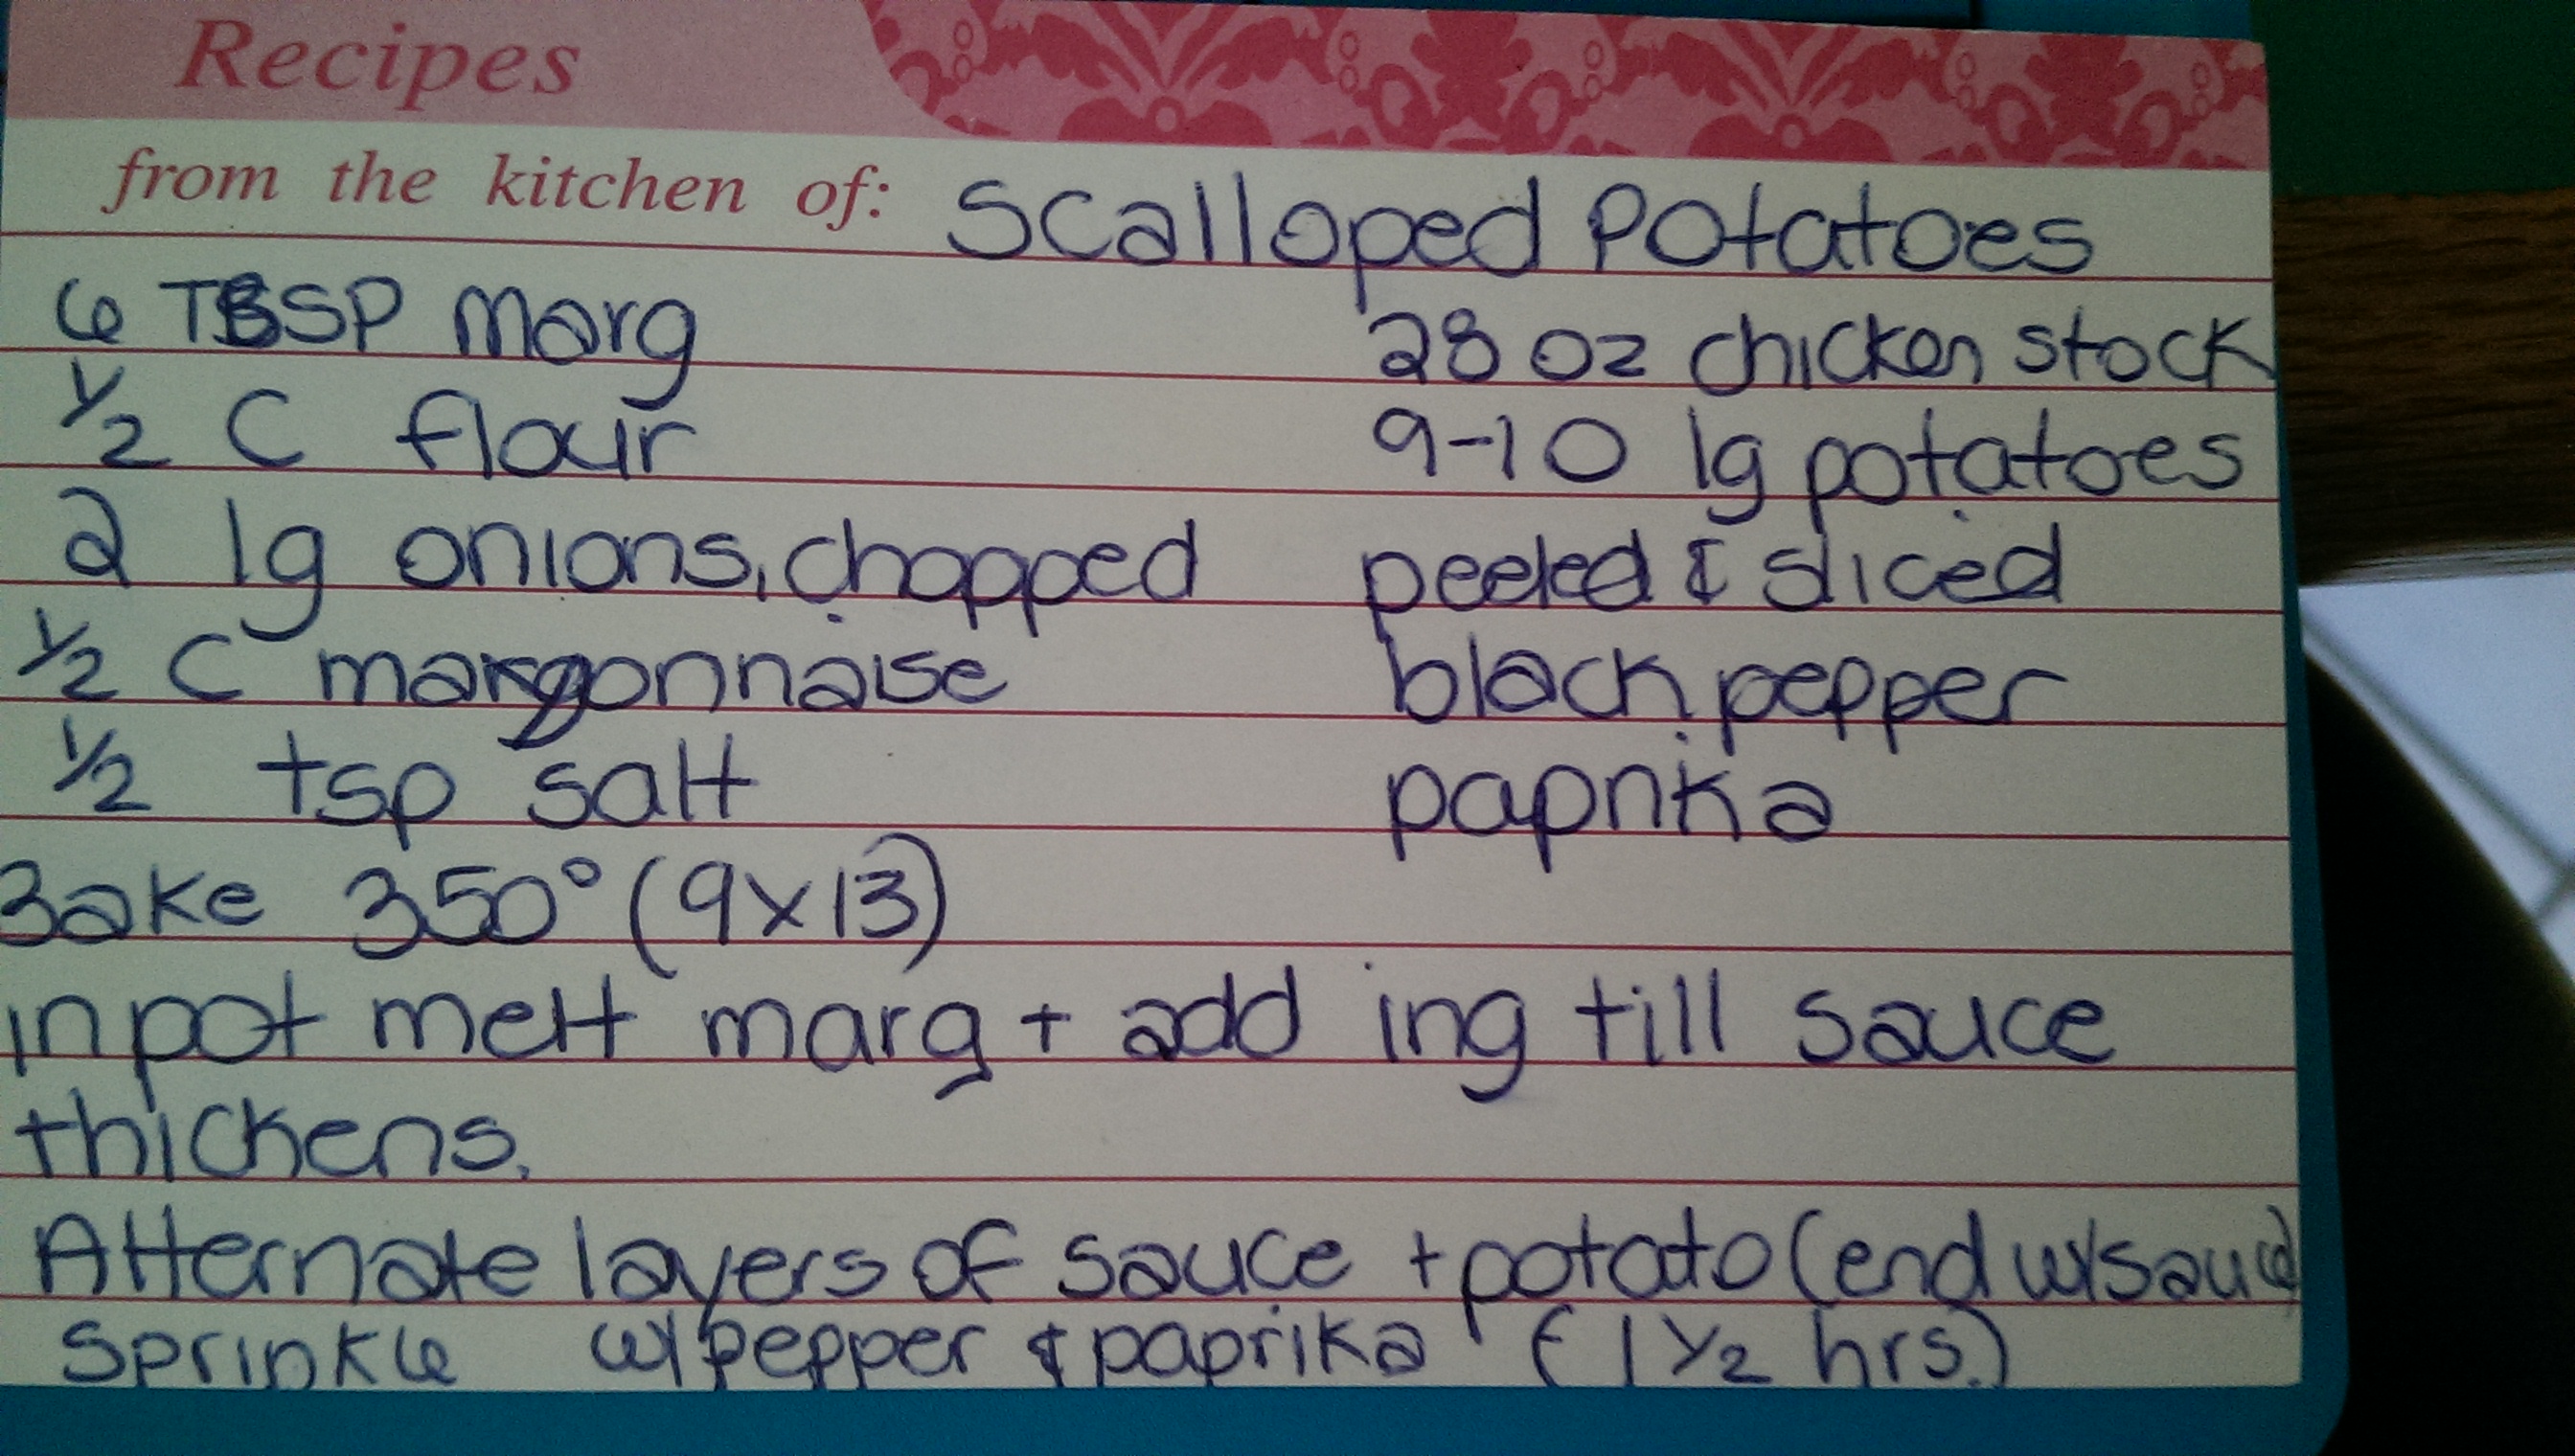 Recipes
from the kitchen of: Scalloped Potatoes
6 TBSP marg
1/2 C flour
2 lg onions, chopped
1/2 C mayonnaise
1/2 tsp salt
28 oz chicken stock
9-10 lg potatoes
peeled & sliced
black pepper
paprika
Bake 350° (9x13)
in pot melt marg + add ing till sauce
thickens.
Alternate layers of sauce + potato (end w/sauce)
Sprinkle w/pepper & paprika (1 1/2 hrs.)